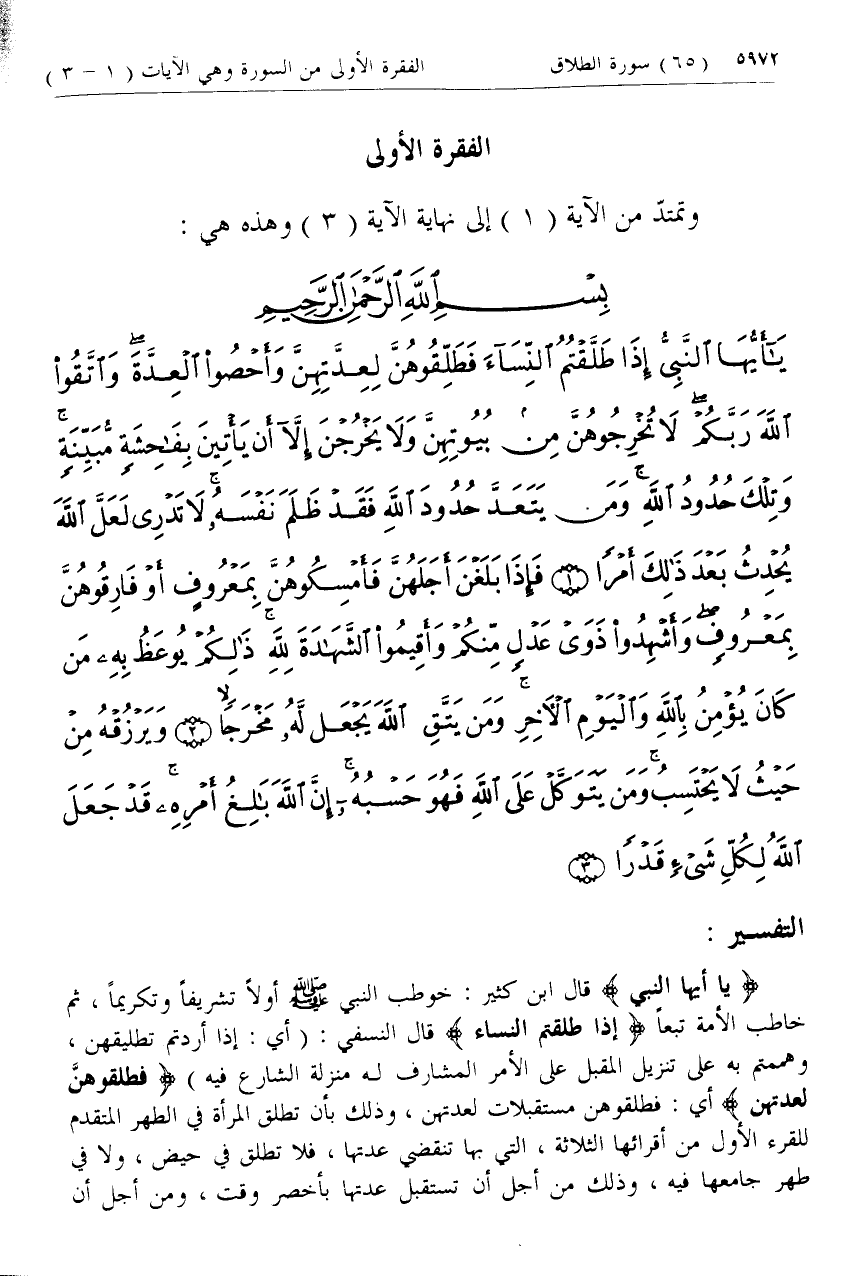 ٥٩٧٢ (٦٥) سورة الطلاق الفقرة الأولى من السورة وهي الآيات ( ١ - ٣ )
الفقرة الأولى
وتمتدّ من الآية ( ١ ) إلى نهاية الآية ( ٣ ) وهذه هي :
بِسْمِ ٱللَّهِ ٱلرَّحْمَٰنِ ٱلرَّحِيمِ
يَٰٓأَيُّهَا ٱلنَّبِىُّ إِذَا طَلَّقْتُمُ ٱلنِّسَآءَ فَطَلِّقُوهُنَّ لِعِدَّتِهِنَّ وَأَحْصُوا۟ ٱلْعِدَّةَ ۖ وَٱتَّقُوا۟
ٱللَّهَ رَبَّكُمْ ۖ لَا تُخْرِجُوهُنَّ مِنۢ بُيُوتِهِنَّ وَلَا يَخْرُجْنَ إِلَّآ أَن يَأْتِينَ بِفَٰحِشَةٍ مُّبَيِّنَةٍ ۚ
وَتِلْكَ حُدُودُ ٱللَّهِ ۚ وَمَن يَتَعَدَّ حُدُودَ ٱللَّهِ فَقَدْ ظَلَمَ نَفْسَهُۥ ۚ لَا تَدْرِى لَعَلَّ ٱللَّهَ
يُحْدِثُ بَعْدَ ذَٰلِكَ أَمْرًا ﴿١﴾ فَإِذَا بَلَغْنَ أَجَلَهُنَّ فَأَمْسِكُوهُنَّ بِمَعْرُوفٍ أَوْ فَارِقُوهُنَّ
بِمَعْرُوفٍ ۖ وَأَشْهِدُوا۟ ذَوَىْ عَدْلٍ مِّنكُمْ وَأَقِيمُوا۟ ٱلشَّهَٰدَةَ لِلَّهِ ۚ ذَٰلِكُمْ يُوعَظُ بِهِۦ مَن
كَانَ يُؤْمِنُ بِٱللَّهِ وَٱلْيَوْمِ ٱلْءَاخِرِ ۚ وَمَن يَتَّقِ ٱللَّهَ يَجْعَل لَّهُۥ مَخْرَجًا ۙ ﴿٢﴾ وَيَرْزُقْهُ مِنْ
حَيْثُ لَا يَحْتَسِبُ ۚ وَمَن يَتَوَكَّلْ عَلَى ٱللَّهِ فَهُوَ حَسْبُهُۥٓ ۚ إِنَّ ٱللَّهَ بَٰلِغُ أَمْرِهِۦ ۚ قَدْ جَعَلَ
ٱللَّهُ لِكُلِّ شَىْءٍ قَدْرًا ﴿٣﴾
التفسير :
﴿ يا أيها النبي ﴾ قال ابن كثير : خوطب النبي ﷺ أولاً تشريفاً وتكريماً ، ثم
خاطب الأمة تبعاً ﴿ إذا طلقتم النساء ﴾ قال النسفي : ( أي : إذا أردتم تطليقهن ،
وهممتم به على تنزيل المقبل على الأمر المشارف له منزلة الشارع فيه ) ﴿ فطلقوهنَّ
لعدتهن ﴾ أي : فطلقوهن مستقبلات لعدتهن ، وذلك بأن تطلق المرأة في الطهر المتقدم
للقرء الأول من أقرائها الثلاثة ، التي بها تنقضي عدتها ، فلا تطلق في حيض ، ولا في
طهر جامعها فيه ، وذلك من أجل أن تستقبل عدتها بأخصر وقت ، ومن أجل أن